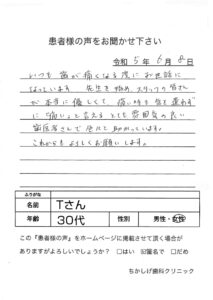 患者様の声をお聞かせ下さい
令和 5年 6月 8日
いつも歯が痛くなる度にお世話に
なっています。先生を始め、スタッフの皆さん
が本当に優しくて、痛い時も気を遣わず
に「痛い」と言える とても雰囲気の良い
歯医者さんで 助かっています。
これからも よろしくお願いします。
ふりがな
名前 Tさん
年齢 30代 性別 男性・女性
この『患者様の声』をホームページに掲載させて頂く場合が
ありますがよろしいでしょうか？ □はい ☑匿名で □だめ
ちかしげ歯科クリニック